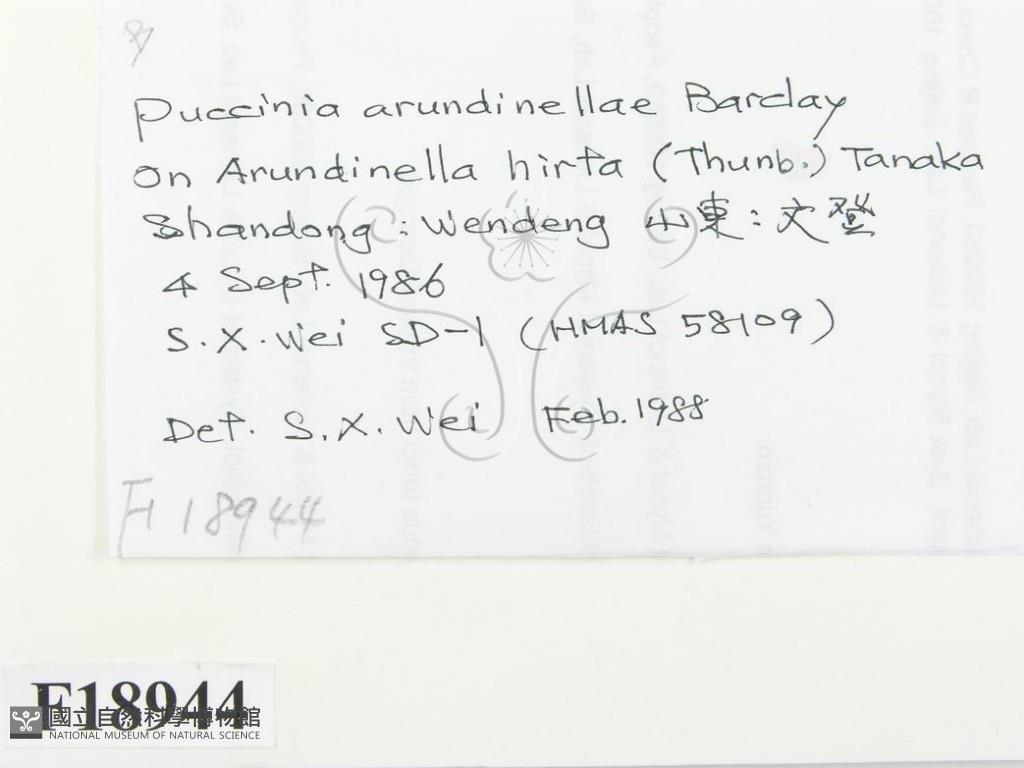 Puccinia arundinellae Barclay
on Arundinella hirta (Thunb.) Tanaka
Shandong : Wendeng 山東:文登
4 Sept. 1986
S.X.Wei SD-1 (HMAS 58109)
Det. S.X.Wei Feb.1988
F18944
F18944
國立自然科學博物館
NATIONAL MUSEUM OF NATURAL SCIENCE